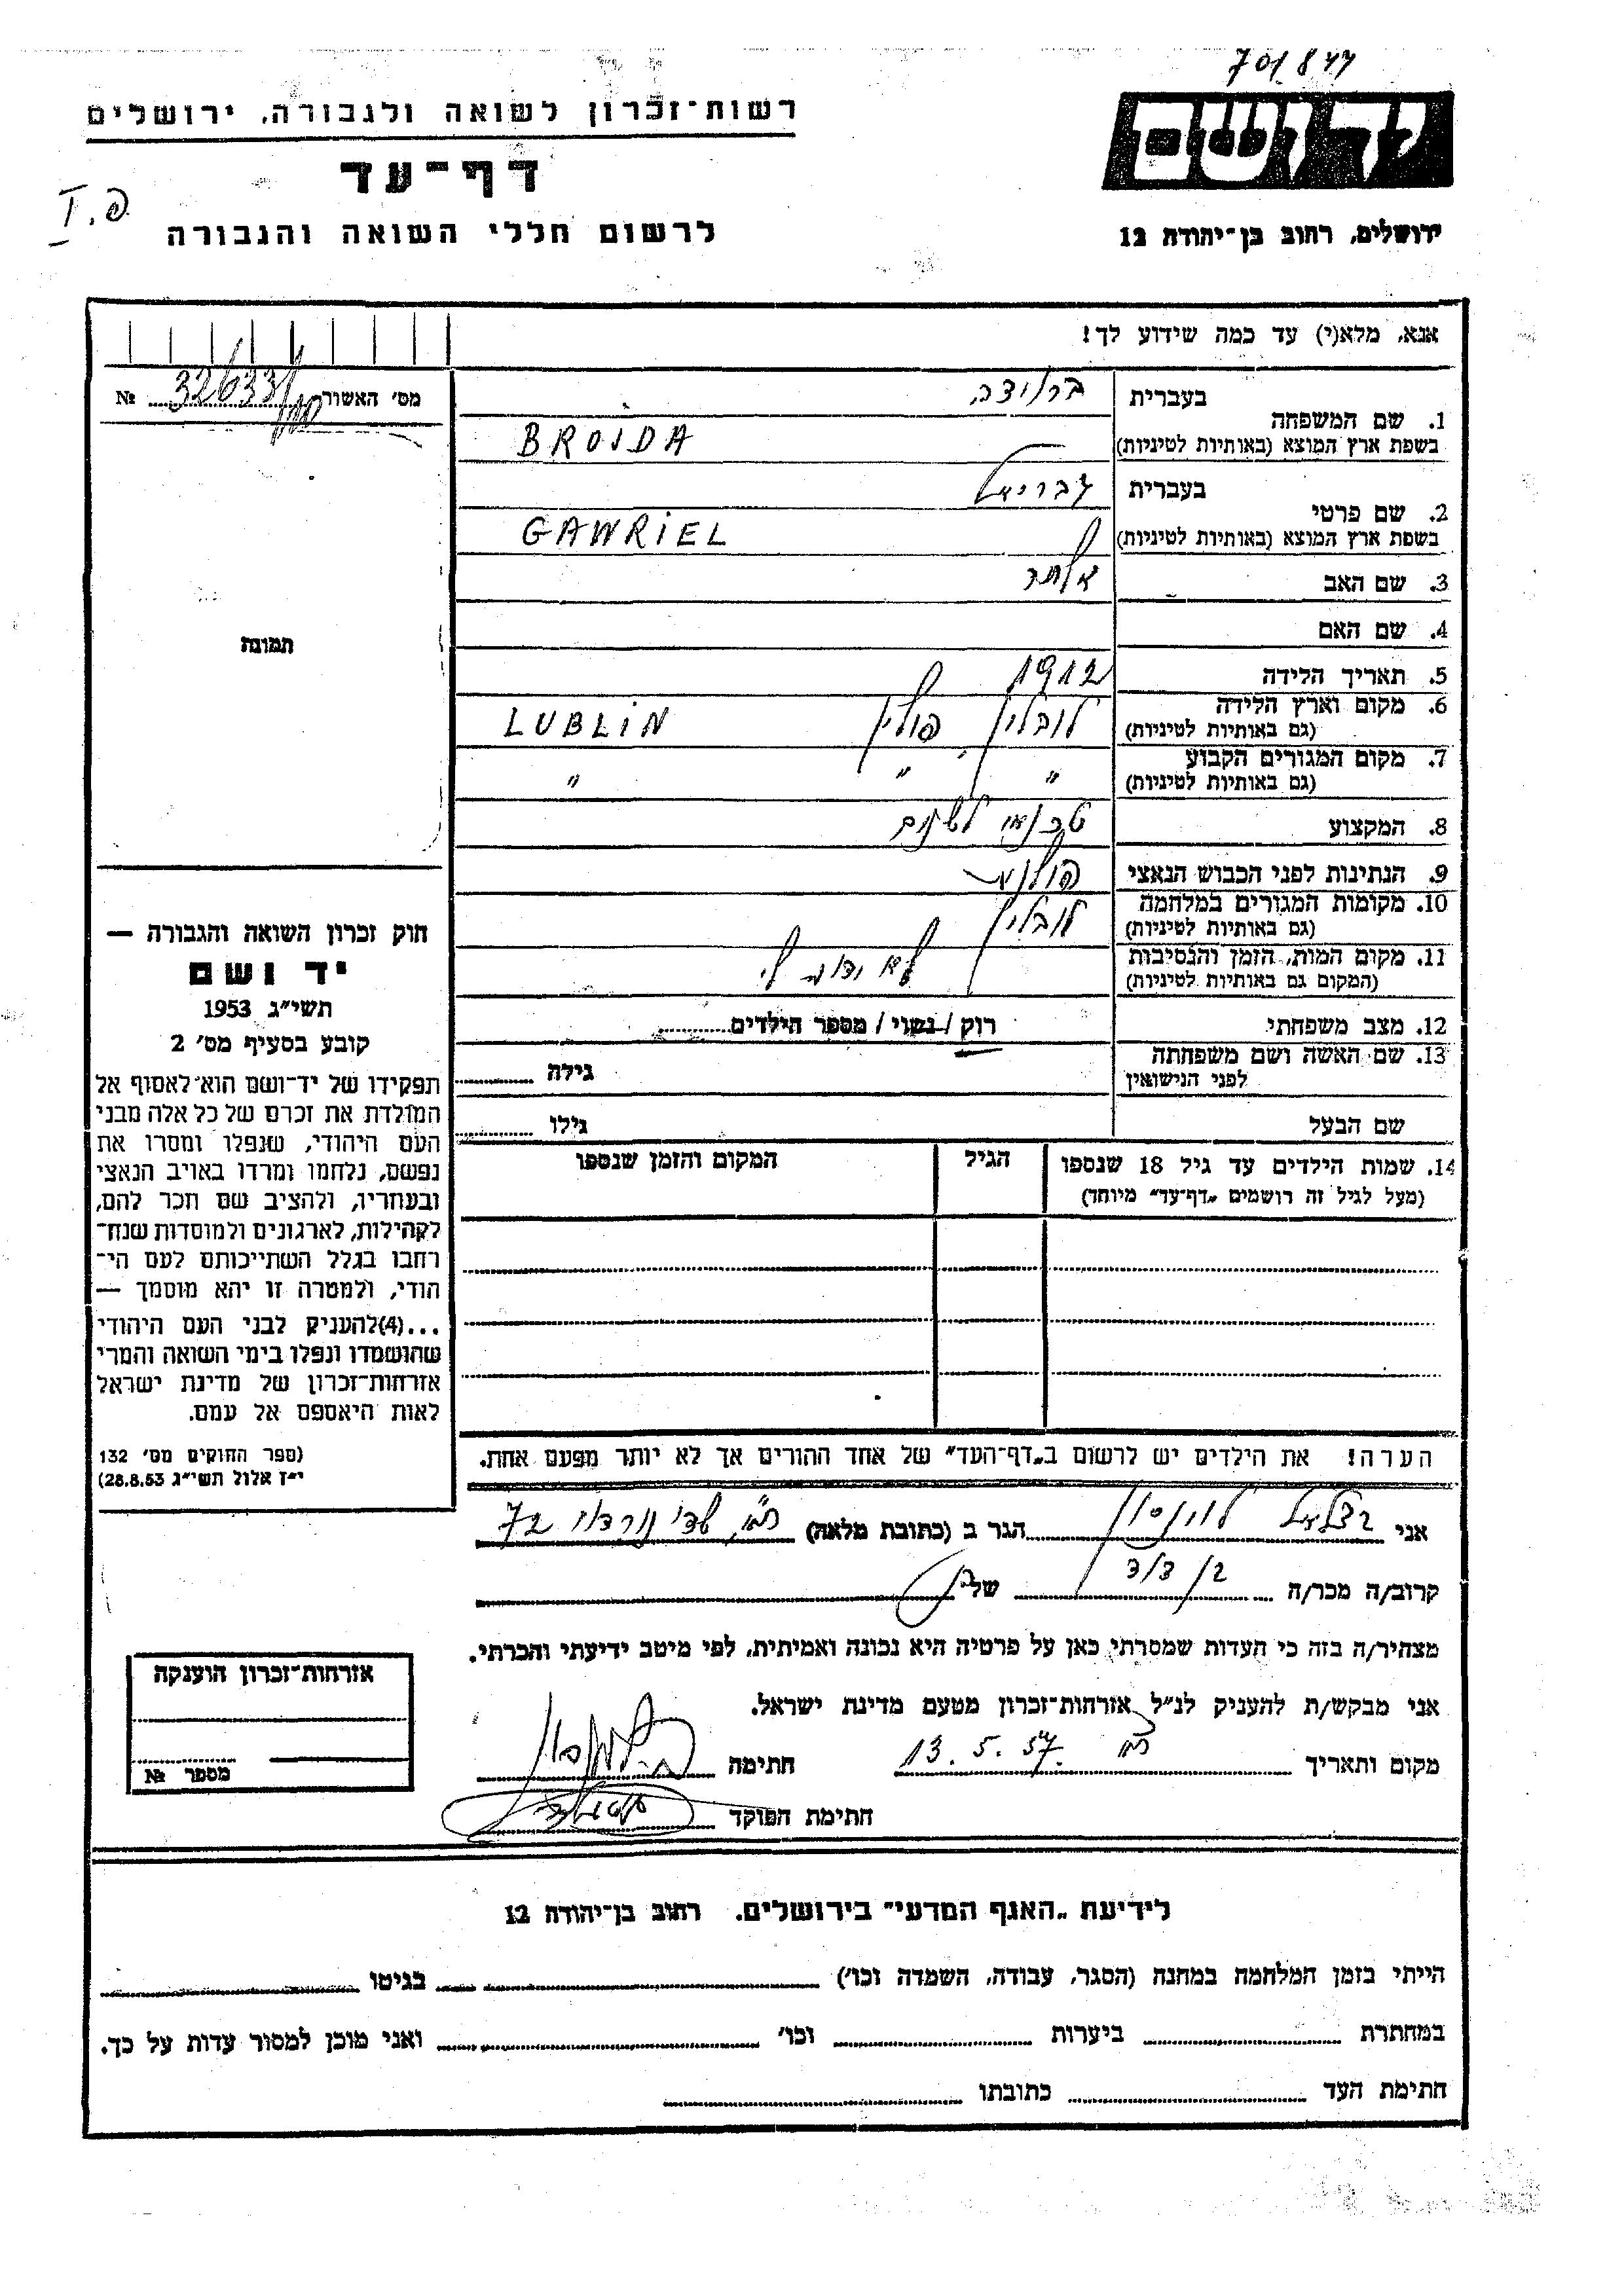 701844
רשות־זכרון לשואה ולגבורה, ירושלים
יד ושם
דף־עד
I.פ
לרשום חללי השואה והגבורה
ירושלים, רחוב בן־יהודה 12
אנא, מלא(י) עד כמה שידוע לך!
מס׳ האשור № 32633
1. שם המשפחה
בעברית ברוידה
בשפת ארץ המוצא (באותיות לטיניות) BROJDA
2. שם פרטי
בעברית גבריאל
בשפת ארץ המוצא (באותיות לטיניות) GAWRIEL
3. שם האב אלתר
4. שם האם
5. תאריך הלידה 1912
6. מקום וארץ הלידה לובלין, פולין LUBLIN
(גם באותיות לטיניות)
7. מקום המגורים הקבוע " " "
(גם באותיות לטיניות)
8. המקצוע טכנאי לשנים
9. הנתינות לפני הכבוש הנאצי פולנית
10. מקומות המגורים במלחמה לובלין
(גם באותיות לטיניות)
11. מקום המות, הזמן והנסיבות לא ידוע לי
(המקום גם באותיות לטיניות)
12. מצב משפחתי רוק / נשוי / מספר הילדים
13. שם האשה ושם משפחתה
לפני הנישואין גילה
שם הבעל גילו
14. שמות הילדים עד גיל 18 שנספו הגיל המקום והזמן שנספו
(מעל לגיל זה רושמים „דף־עד" מיוחד)
הערה! את הילדים יש לרשום ב„דף־העד" של אחד ההורים אך לא יותר מפעם אחת.
תמונה
חוק זכרון השואה והגבורה —
יד ושם
תשי"ג 1953
קובע בסעיף מס׳ 2
תפקידו של יד־ושם הוא לאסוף אל
המולדת את זכרם של כל אלה מבני
העם היהודי, שנפלו ומסרו את
נפשם, נלחמו ומרדו באויב הנאצי
ובעוזריו, ולהציב שם וזכר להם,
לקהילות, לארגונים ולמוסדות שנח־
רבו בגלל השתייכותם לעם הי־
הודי, ולמטרה זו יהא מוסמך —
...(4)להעניק לבני העם היהודי
שהושמדו ונפלו בימי השואה והמרי
אזרחות־זכרון של מדינת ישראל
לאות היאספם אל עמם.
(ספר החוקים מס׳ 132
י"ז אלול תשי"ג 28.8.53)
אני בצלאל לוינסון הגר ב (כתובת מלאה) ת"א, שד׳ נורדוי 72
קרוב/ה מכר/ה בן דוד של
מצהיר/ה בזה כי העדות שמסרתי כאן על פרטיה היא נכונה ואמיתית, לפי מיטב ידיעתי והכרתי.
אני מבקש/ת להעניק לנ"ל אזרחות־זכרון מטעם מדינת ישראל.
מקום ותאריך ת"א 13.5.57 חתימה
חתימת הפוקד
אזרחות־זכרון הוענקה
מספר №
לידיעת „האגף המדעי" בירושלים. רחוב בן־יהודה 12
הייתי בזמן המלחמה במחנה (הסגר, עבודה, השמדה וכו׳) בגיטו
במחתרת ביערות וכו׳ ואני מוכן למסור עדות על כך.
חתימת העד כתובתו